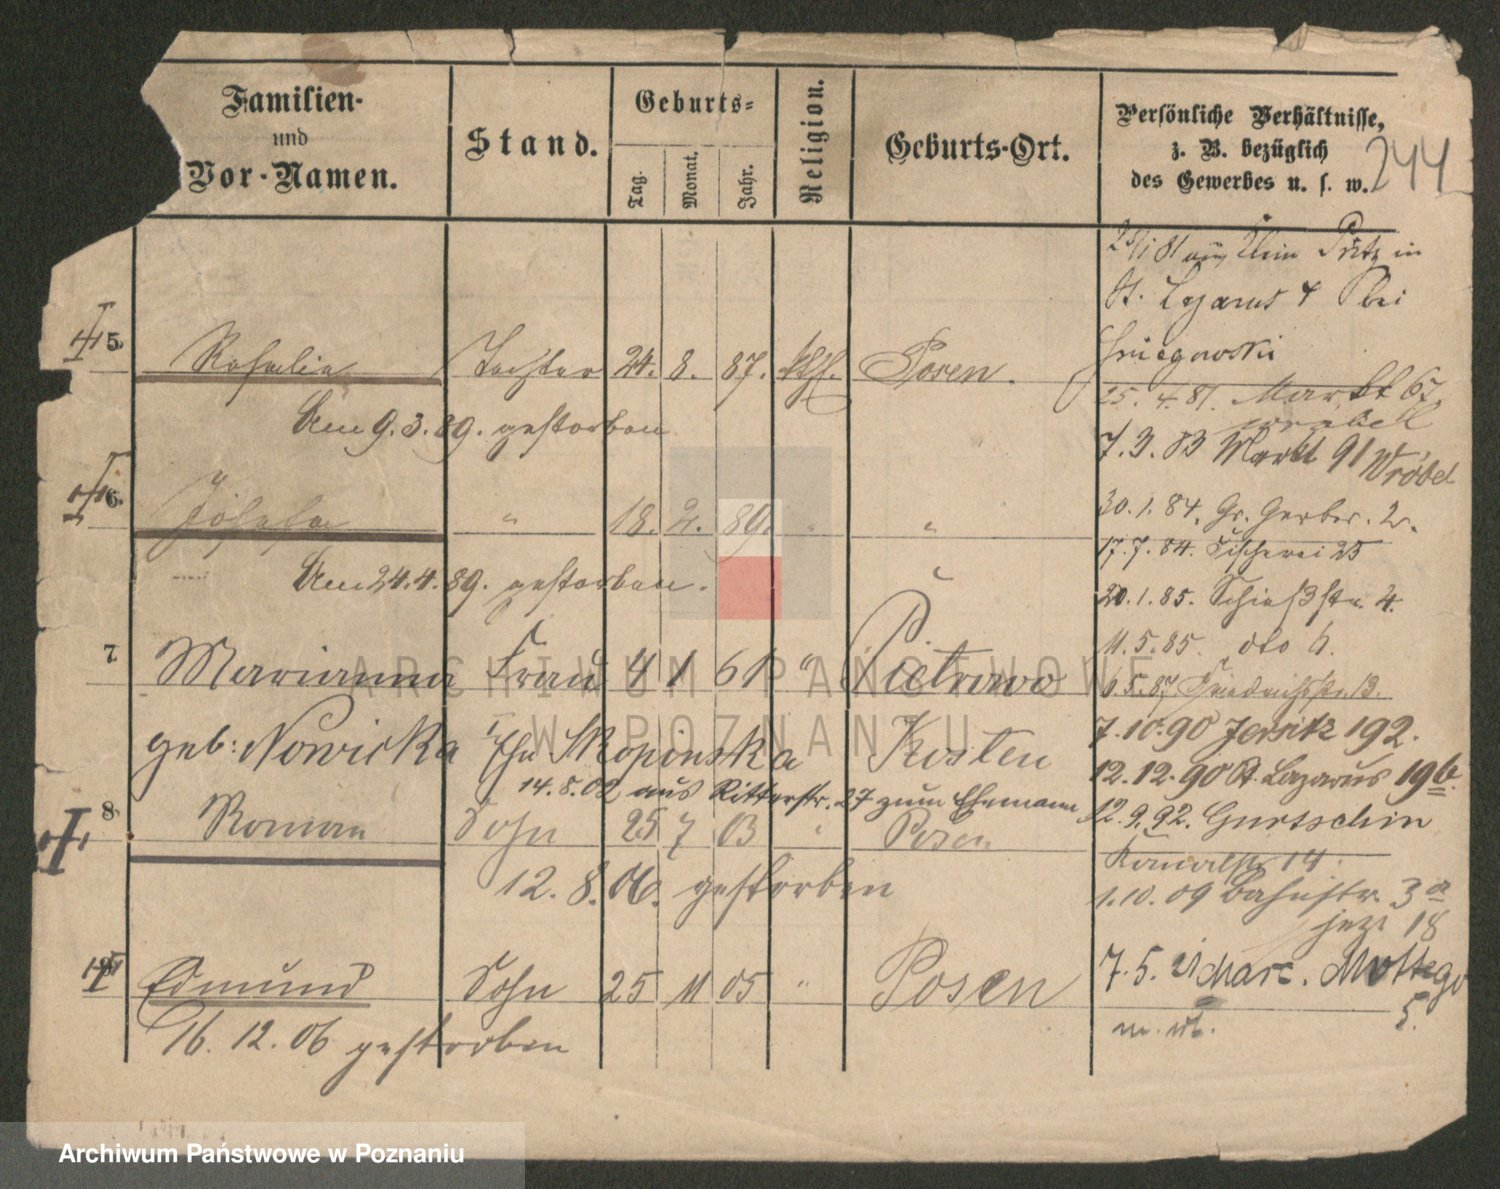 Familien-
und
Vor-Namen.
Stand.
Geburts-
Tag.
Monat.
Jahr.
Religion.
Geburts-Ort.
Persönliche Verhältnisse,
z. B. bezüglich
des Gewerbes u. s. w.
244
5. Rosalia Tochter 24. 8. 87. kth. Posen.
Am 9. 3. 89. gestorben
6. Josefa " 18. 2. 89. " "
Am 24. 4. 89. gestorben.
7 Marianna Frau 4 1 61 " Pietrowo
geb: Nowicka Skopinska Kosten
14. 8. 02 aus Ritterstr. 27 zum Ehemann
8 Roman Sohn 25 7 03 " Posen
12. 8. 06. gestorben
9 Edmund Sohn 25 11 05 " Posen
16. 12. 06 gestorben
in
St. Lazarus 4 bei
25. 4. 81. Markt 67
7. 3. 83 Markt 91 Wróbel
30. 1. 84. Gr. Gerber. 2.
17. 7. 84. Fischerei 25
20. 1. 85. Schießstr. 4.
11. 5. 85. dto 6.
6 5. 87 Friedrichstr. 13.
7. 10. 90 Jersitz 192.
12. 12. 90 St. Lazarus 19b.
12. 9. 92. Gurtschin
14.
1. 10. 09 Bahnstr. 3a
jezt 18
7. 5. 21 Marc. Mottego
5.
ARCHIWUM PAŃSTWOWE
W POZNANIU
Archiwum Państwowe w Poznaniu